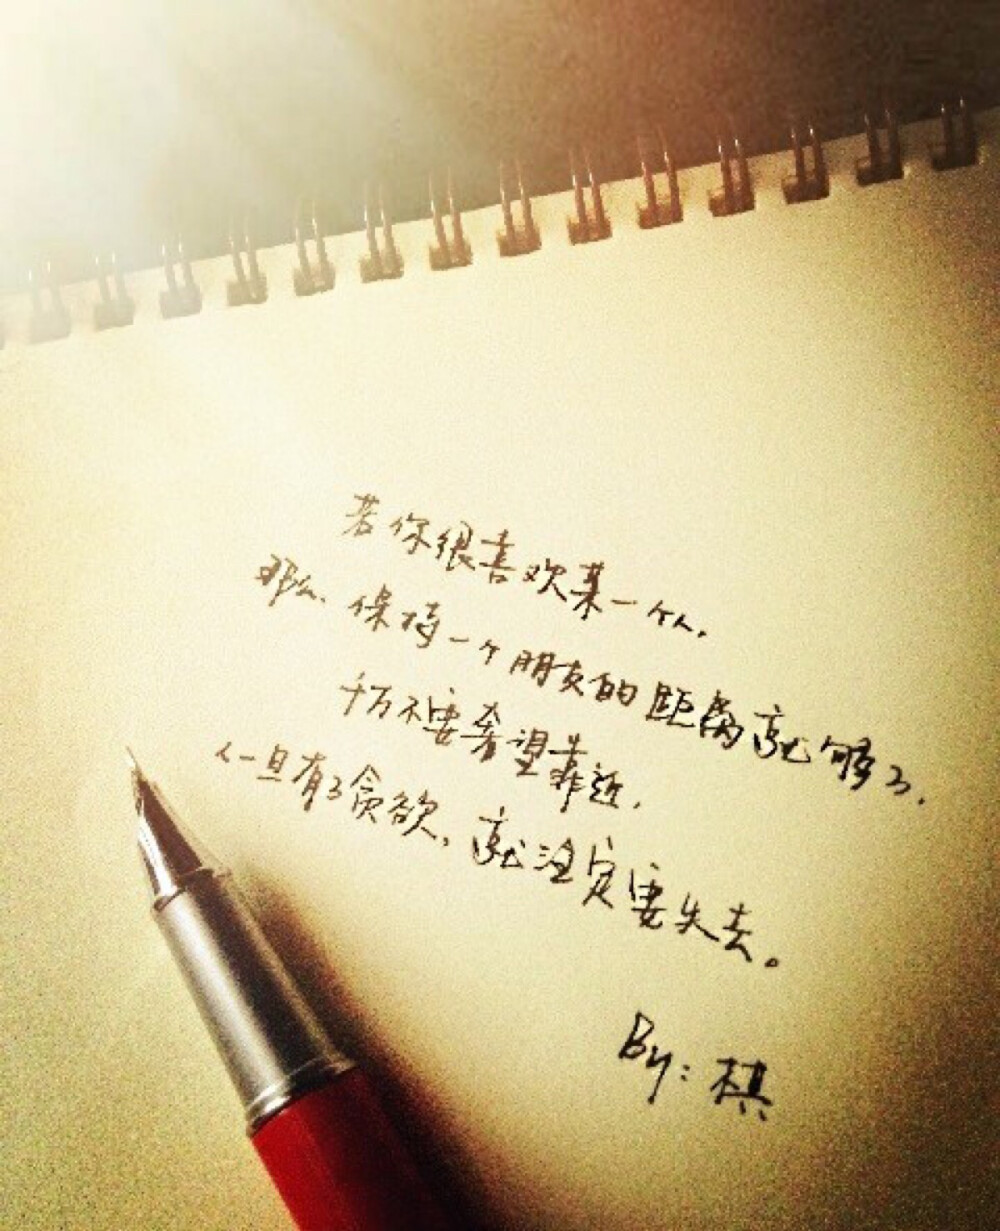 若你很喜欢某一个人,
那么、保持一个朋友的距离就够了.
千万不要希望靠近.
人一旦有了贪欲,就注定要失去。
By:棋